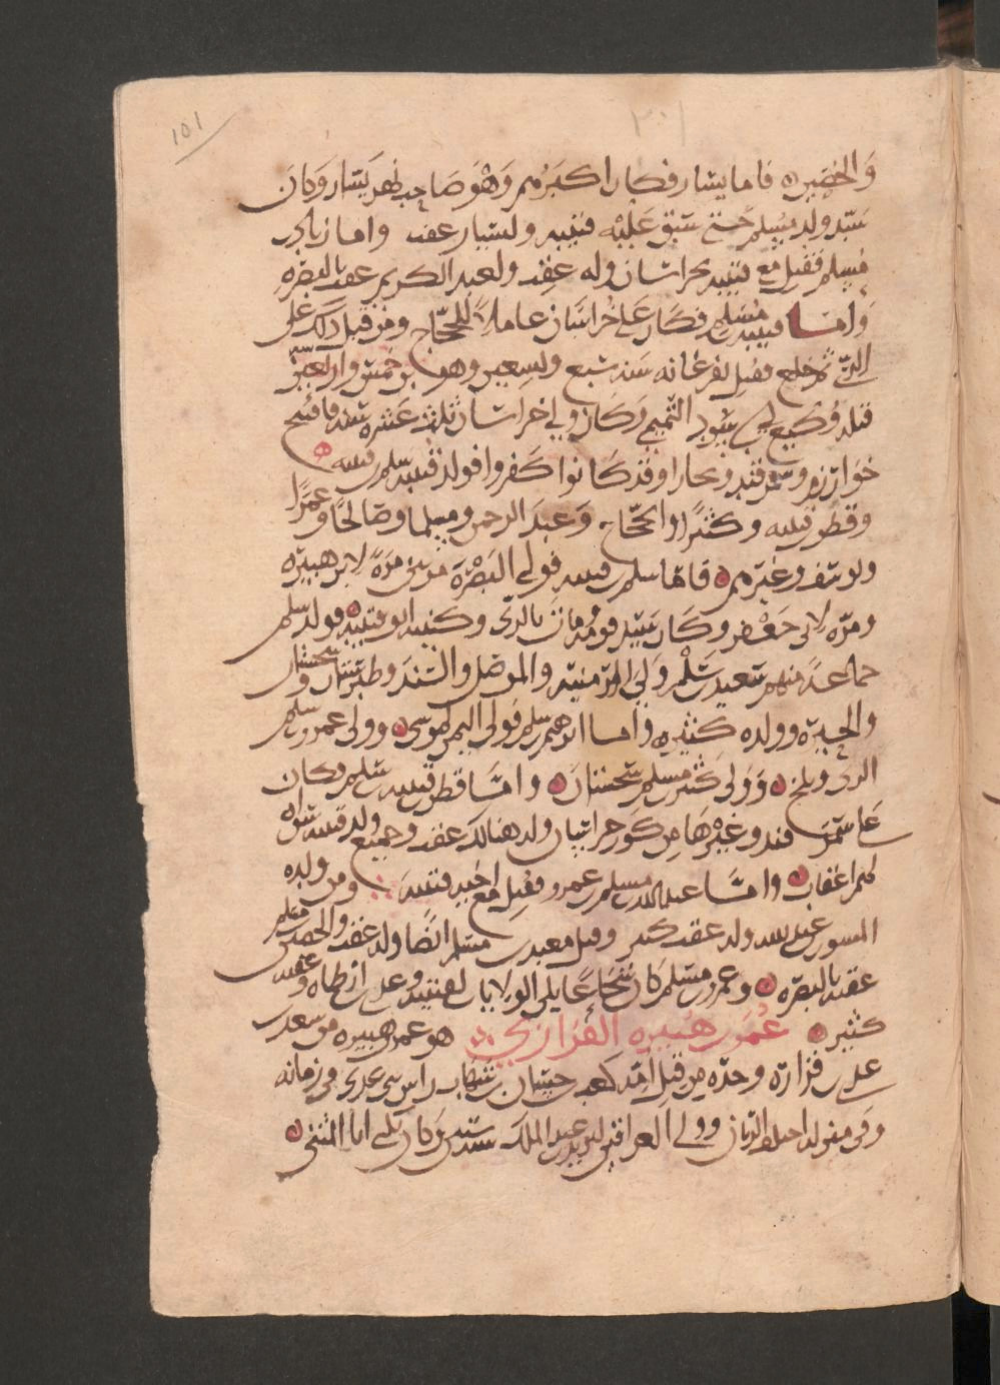 ١٥١
والحصين فاما يسار فكان اكبرهم وهو صاحب نهر يسار وكان
سيد ولد مسلم حتى سبق عليه قتيبه وليسار عقب واما زياد بن
مسلم فقتل مع قتيبه بخراسان وله عقب ولعبد الكريم عقب بالبصره
واما قتيبه بن مسلم فكان على خراسان عاملا للحجاج ومن قبل ذلك على
الري ثم خلع فقتل بفرغانه سنه سبع وتسعين وهو بن خمس واربعين
قتله وكيع بن ابي سود التميمي وكان ولي خراسان ثلث عشره سنه فافتتح
خوارزم وسمرقند وبخارا وقد كانوا كفروا فولد قتيبه سلم بن قتيبه
وقطن بن قتيبه وكثيرا والحجاج وعبد الرحمن ومسلما وصالحا وعمرا
ويوسف وغيرهم فاما سلم بن قتيبه فولي البصرة مرتين مرة لابن هبيره
ومره لابي جعفر وكان سيد قومه ومات بالري وكنيته ابو قتيبه فولد سلم
جماعة منهم سعيد بن سلم ولي ارمينيه والموصل والسند وطبرستان وسجستان
والجزيره وولده كثير واما ابرهيم بن سلم فولي اليمن لموسى وولى عمرو بن سلم
الري وبلخ وولى كثير بن سلم سجستان واما قطن بن قتيبه بن مسلم فكان
على سمرقند وغيرها من كور خراسان وله هنالك عقب وجميع ولد قتيبه سواه
لهم اعقاب واما عبد الله بن مسلم بن عمرو فقتل مع اخيه قتيبه ومن ولده
المسور بن عبد الله وله عقب كثير وقتل معبد بن مسلم ايضا وله عقب والحصين بن مسلم
عقبه بالبصره وعمرو بن مسلم كان شجاعا يلي الولايات لقتيبه وعدي بن ارطاه وعقبه
كثير عمر بن هبيره الفزاري هو عمر بن هبيره من سعد بن
عدي بن فزارة وجده من قبل امه كعب بن حسان بن شهاب راس بني عدي في زمانه
وفي منزله اختلط الديان وولي العراقين ليزيد بن عبد الملك ست سنين وكان يكنى ابا المثنى